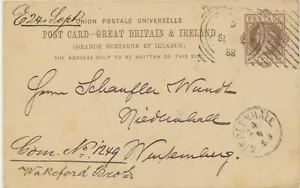 E 24. Sept.
UNION POSTALE UNIVERSELLE
POST CARD—GREAT BRITAIN & IRELAND
(GRANDE BRETAGNE ET IRLANDE)
THE ADDRESS ONLY TO BE WRITTEN ON THIS
POSTAGE
88
Herrn Schauffler Wundt
Niedernhall
Com. No. 1249 Wurtemberg.
Wakeford Bros